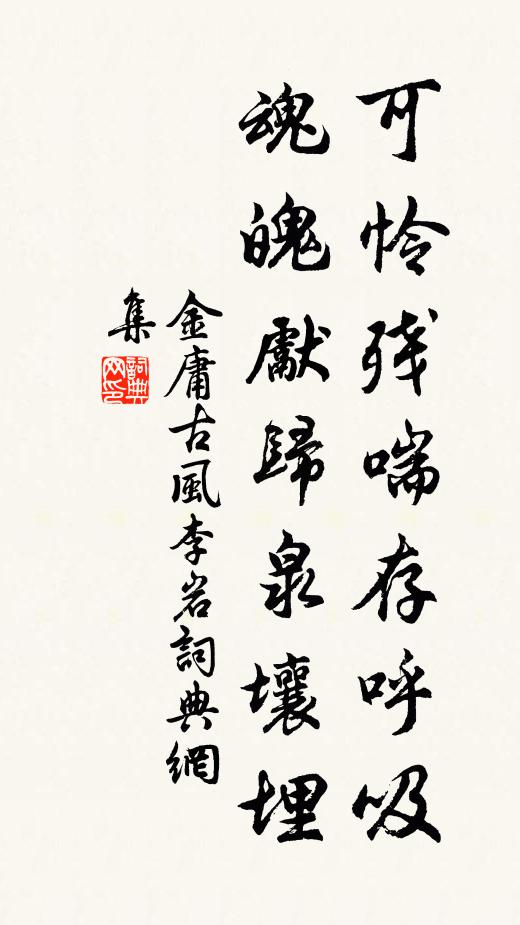 可怜残喘存呼吸
魂魄獻歸泉壤埋
金庸古風李岩詞典網
集
詞典网印